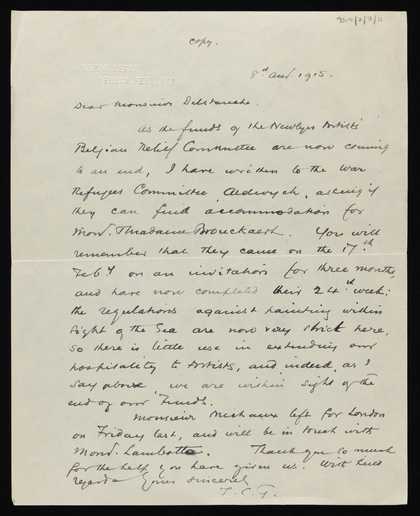 copy.
8th Aug 1915.
Dear Monsieur Delstanche.
As the funds of the Newlyn Artists
Belgian Relief Committee are now coming
to an end, I have written to the War
Refugees Committee Aldwych, asking if
they can find accommodation for
Mons. & Madame Brouckaert. You will
remember that they came on the 17th
Feby on an invitation for three months,
and have now completed their 24th week:
the regulations against painting within
sight of the Sea are now very strict here,
so there is little use in extending our
hospitality to Artists, and indeed, as I
say above we are within sight of the
end of our Funds.
Monsieur left for London
on Friday last, and will be in touch with
Mons. Lambotte. Thank you so much
for the help you have given us. With kind
regards Yours sincerely
T. C. G.